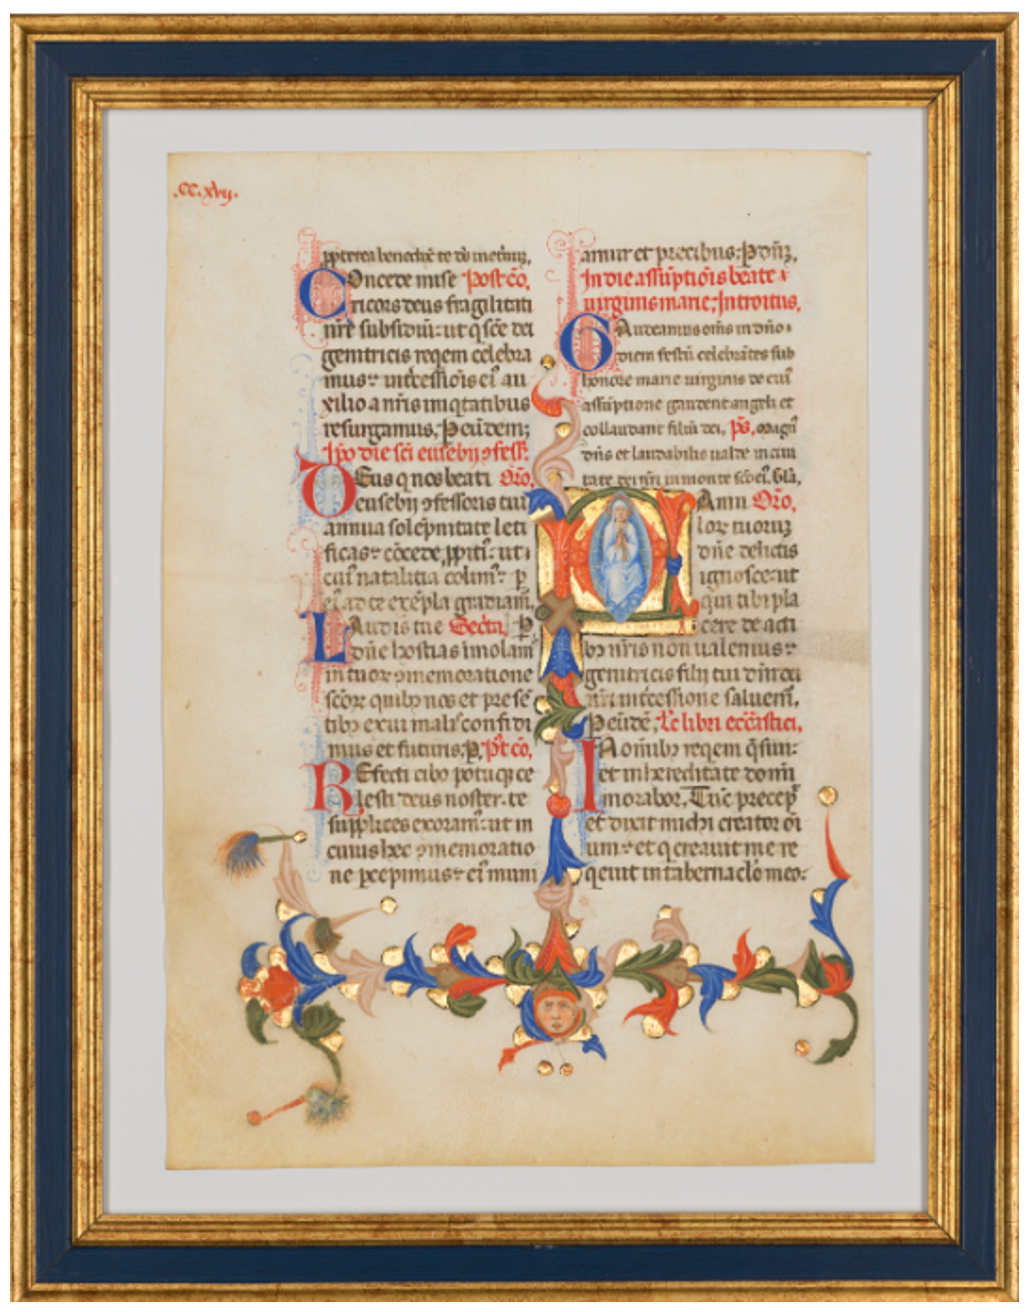 .CC.xvij.
ꝓpterea benedix̄ te d̄s in etnuꝫ.
Concede mise Postcō,
ricors deus fragilitati
nr̄e subsidiū: ut q sc̄e dei
genitricis reqem celebra
mus: int̄cessiōis ei᾽ au
xilio a nr̄is iniqtatibus
resurgamus, P eūdem;
Ipo die sc̄i eusebij ꝯfess.
Deus q nos beati Orō,
eusebij ꝯfessoris tui
annua solēpnitate leti
ficas: cōcede ꝓpiti᾽: ut
cui᾽ natalitia colim᾽: p
ei᾽ ad te exēpla gradiam᾽,
Laudis tue Secr̄ta, P
dn̄e hostias imolam᾽
in tuoꝝ ꝯmemoratione
sc̄oꝝ quibꝫ nos et presē
tibꝫ exui malis confidi
mus et futuris, P, Pt cō,
Refecti cibo potuqꝫ ce
lesti deus noster. te
supplices exoram᾽: ut in
cuius hec ꝯmemoratio
ne ꝑcepimus: ei᾽ muni
amur et precibus: P dn̄ꝫ,
In die assūptiōis beate
uirginis marie, Introitus,
Gaudeamus om̄s in dn̄o
diem festū celebrātes sub
honore marie uirginis de cui᾽
assūptione gaudent angeli et
collaudant filiū dei, ps, magn᾽
dn̄s et laudabilis ualde in ciui
tate dei nr̄i in monte sc̄o ei᾽. Gl̄a,
Famu Orō,
loꝝ tuoruꝫ
dn̄e delictis
ignosce: ut
qui tibi pla
cere de acti
bꝫ nr̄is non ualemus:
genitricis filij tui dn̄i dei
nr̄i int̄cessione saluem᾽,
P eūdē, Lc̄ libri eccāstici,
In om̄ibꝫ reqem q̄siui:
et in hereditate dom̄i
morabor, Tūc precep᾽
et dixit michi creator oī
um: et q creauit me re
qeuit in tabernac̄lo meo: